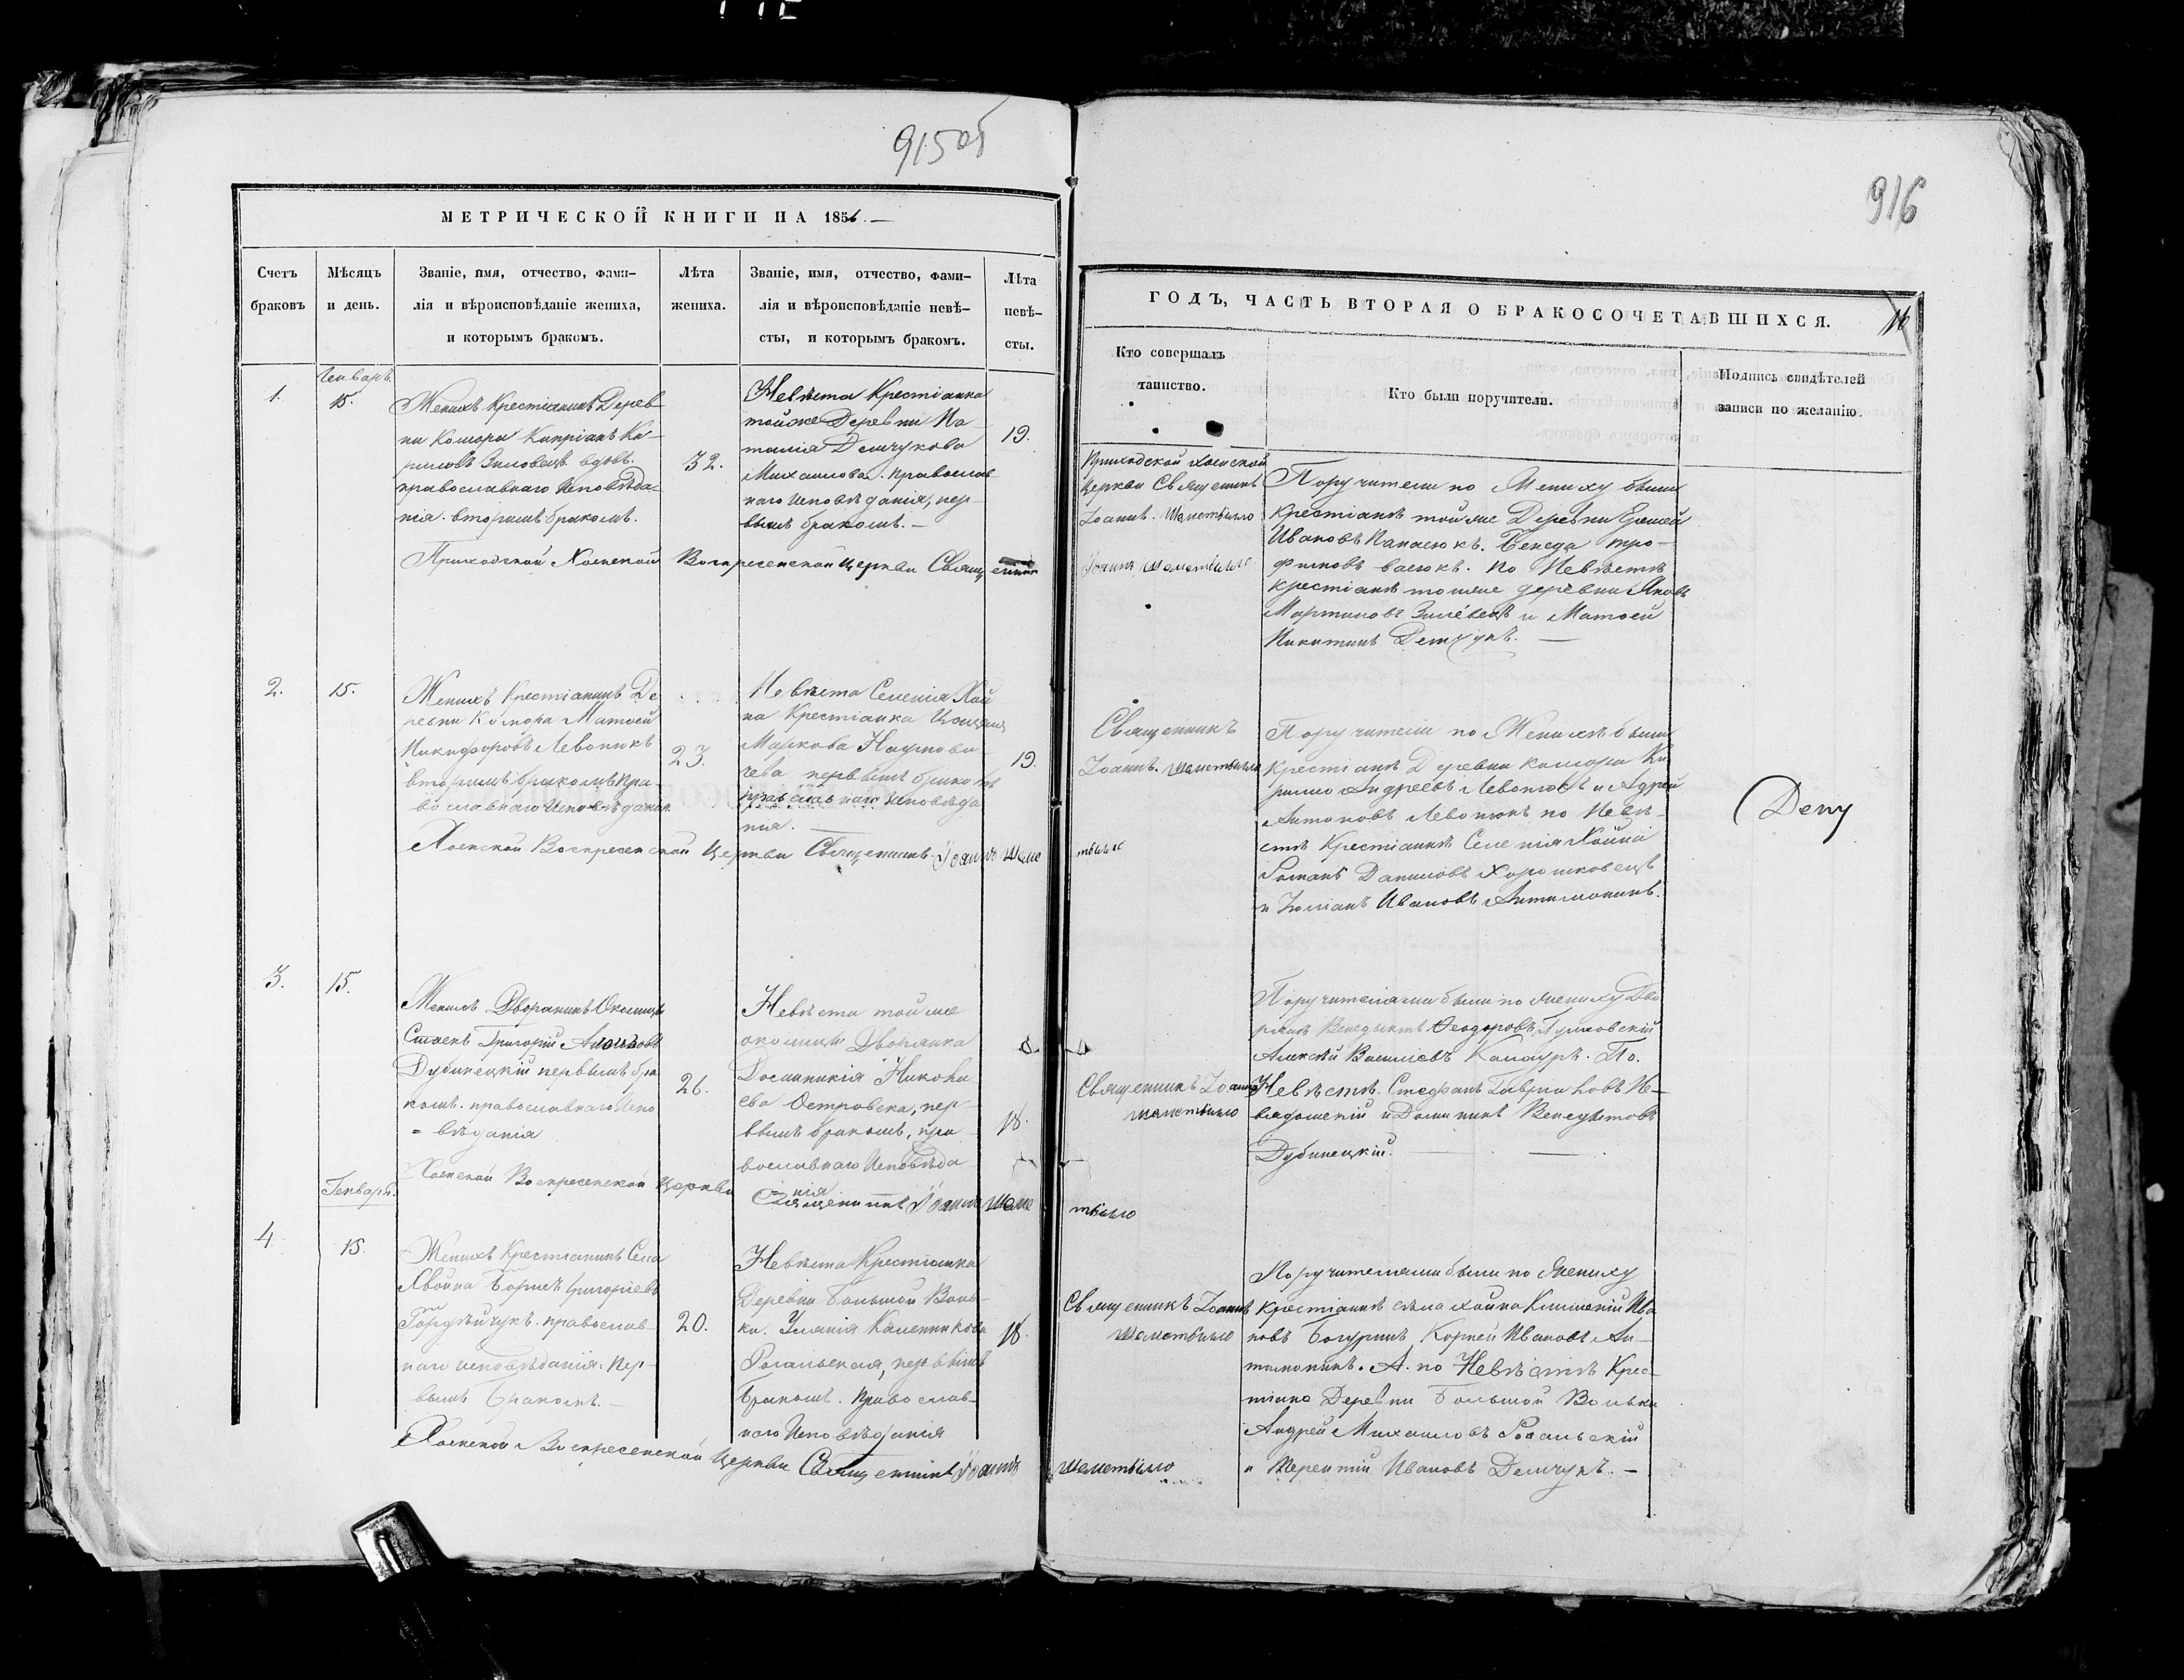 915об
916
МЕТРИЧЕСКОЙ КНИГИ НА 1856.—
ГОДЪ, ЧАСТЬ ВТОРАЯ О БРАКОСОЧЕТАВШИХСЯ.
16
Счетъ
браковъ
Мѣсяцъ
и день.
Званіе, имя, отчество, фами-
лія и вѣроисповѣданіе жениха,
и которымъ бракомъ.
Лѣта
жениха.
Званіе, имя, отчество, фами-
лія и вѣроисповѣданіе невѣ-
сты, и которымъ бракомъ.
Лѣта
невѣ-
сты.
Кто совершалъ
таинство.
Кто были поручители.
Подпись свидѣтелей
записи по желанію.
1.
Генварь
15.
Женихъ Крестіанинъ Дерев-
ни Комора Кипріанъ Ки-
риловъ Зиловецъ вдовъ.
православнаго Исповѣда-
нія. вторимъ бракомъ.
32.
Невѣста Крестіанка
тойже Деревни На-
талія Демчукова
Михаилова. православ-
наго Исповѣданія, пер-
вымъ бракомъ.—
19.
Приходской Хоенской
Церкви Священникъ
Іоаннъ. Шеметилло
Поручители по Жениху были
Крестіанѣ тойже Деревни
Ивановъ Панасюкъ. Тро-
фимовъ васюкъ. По Невѣстѣ
крестіанѣ тоеже деревни Яковъ
Мартиновъ Зилевецъ и Матвей
Никитинъ Демчукъ. —
Приходской Хоенской Воскресенской Церкви Священникъ
Іоаннъ Шеметилло
2.
15.
Женихъ Крестіанинъ Де
ревни Комора Матвей
Никифоровъ Левонюкъ
вторимъ бракомъ Пра-
вославнаго Исповѣданія.
23.
Невѣста Селенія Хой
на Крестіанка
Маркова Наумови-
чева первымъ бракомъ
православнаго Исповѣда
нія. —
19.
Священникъ
Іоаннъ. Шеметилло
Поручители по Женихѣ были
Крестіанѣ Деревни Комора Ки
рилло Андреевъ Левонюкъ и Адрей
Антоновъ Левонюкъ по Невѣ-
стѣ Крестіанѣ Селенія Хойна
Романъ Даниловъ Хорошковецъ
и Юліанъ Ивановъ Антимоникъ.
Хоенской Воскресенской Церкви Священникъ Іоаннъ Шеме
тилло
3.
15.
Женихъ Дворянинъ Околицы
Ставекъ Григорій
Дубинецкій первымъ бра
комъ. православнаго Испо
= вѣданія
26.
Невѣста тойже
околицы Дворянка
Доминикія
Островска, пер-
вымъ бракомъ, пра
вославнаго Исповѣда
нія
18.
Священникъ Іоаннъ
Шеметилло
Поручителями были по жениху Дво
ряне Венедыктъ Феодоровъ
Алексѣй Василіевъ. По.
Невѣстѣ. Стефанъ Гавриловъ Не-
вядомскій и Доминикъ Венедыктовъ
Дубинецкій. — —
Хоенской Воскресенской Церкви Священникъ Іоаннъ Шеме
тилло
Генварь.
4.
15.
Женихъ Крестіанинъ Села
Хвойна Борисъ Григоріевъ
Гордѣйчукъ. православ-
наго исповѣданія. Пер-
вымъ Бракомъ. —
20.
Невѣста Крестіанка
Деревни Большой Воль-
ки. Уляпія Каленикова
Рогальская, первымъ
Бракомъ. Православ-
наго Исповѣданія
18.
Священникъ Іоаннъ
Шеметилло
Поручителями были по жениху
Крестіанинъ села хойна Ива
новъ Корней Ивановъ Ан-
тимоникъ. А. по Невѣстѣ Крес-
тіане Деревни Большой Вольки
Андрей Михаиловъ Рогальскій
и Терентій Ивановъ Демчукъ. —
Хоенской Воскресенской Церкви Священникъ Іоаннъ
Шеметилло